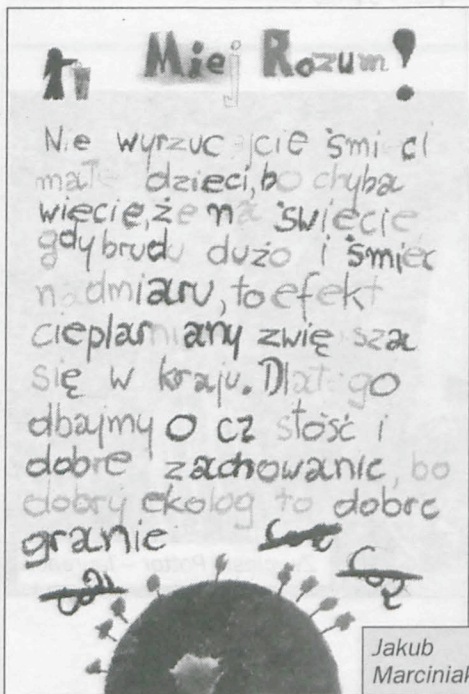 Miej Rozum!
Nie wyrzucajcie śmieci
małe dzieci, bo chyba
wiecie, że na świecie
gdy brudu dużo i śmieci
nadmiaru, to efekt
cieplarniany zwiększa
się w kraju. Dlatego
dbajmy o czystość i
dobre zachowanie, bo
dobry ekolog to dobre
granie
CO2
CO2
CO2
Jakub
Marciniak